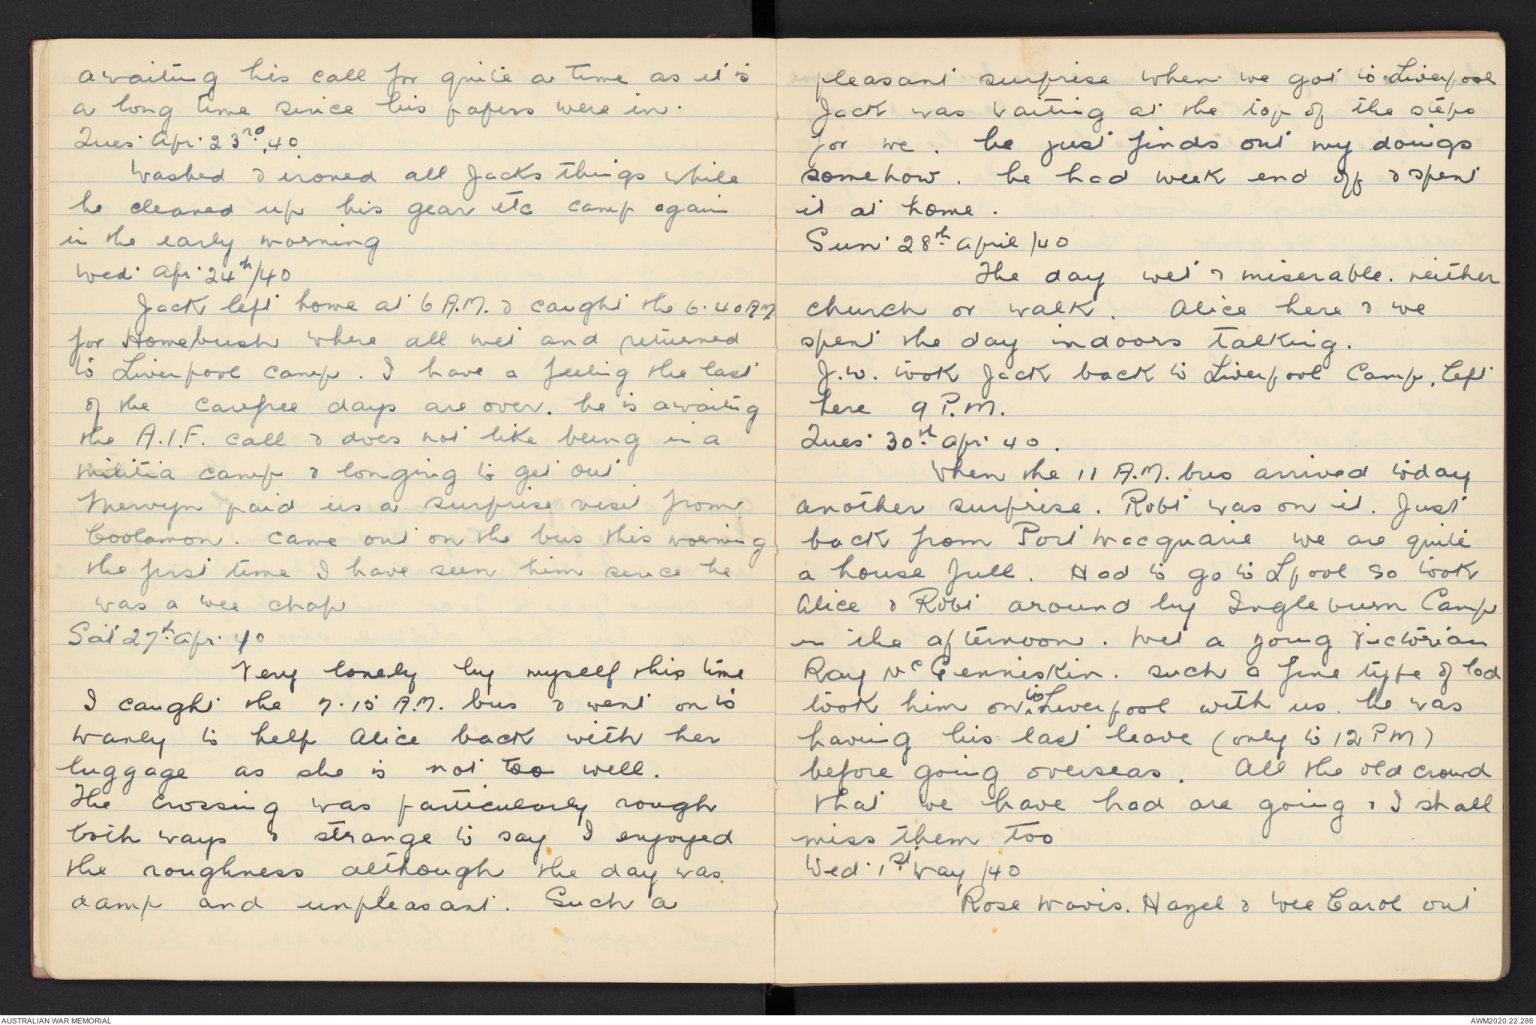 awaiting his call for quite a time as it's
a long time since his papers were in.
Tues. Apr. 23rd. 40
Washed & ironed all Jacks things while
he cleaned up his gear etc camp again
in the early morning
Wed. Apr. 24th/40
Jack left home at 6 A.M. & caught the 6.40 AM
for Homebush where all met and returned
to Liverpool camp. I have a feeling the last
of the carefree days are over. he is awaiting
the A.I.F. call & does not like being in a
militia camp & longing to get out
Mervyn paid us a surprise visit from
Coolamon. came out on the bus this morning
the first time I have seen him since he
was a wee chap
Sat 27th Apr. 40
Very lonely by myself this time
I caught the 7.15 A.M. bus & went on to
Manly to help Alice back with her
luggage as she is not too well.
The crossing was particularly rough
both ways & strange to say I enjoyed
the roughness although the day was
damp and unpleasant. Such a
pleasant surprise when we got to Liverpool
Jack was waiting at the top of the steps
for we. he just finds out my doings
somehow. he had week end off & spent
it at home.
Sun. 28th April /40
The day wet & miserable. neither
church or walk. Alice here & we
spent the day indoors talking.
J.W. took Jack back to Liverpool Camp, left
here 9 P.M.
Tues. 30th Apr. 40.
When the 11 A.M. bus arrived today
another surprise. Robt was on it. Just
back from Port Macquarie we are quite
a house full. Had to go to Lpool so took
Alice & Robt around by Ingleburn Camp
in the afternoon. Met a young Victorian
Ray Mc. such a fine type of lad
took him on to Liverpool with us. he was
having his last leave (only to 12 PM)
before going overseas. All the old crowd
that we have had are going & I shall
miss them too
Wed. 1st May /40
Rose Mavis. Hazel & wee Carol out
AUSTRALIAN WAR MEMORIAL
AWM2020.22.286